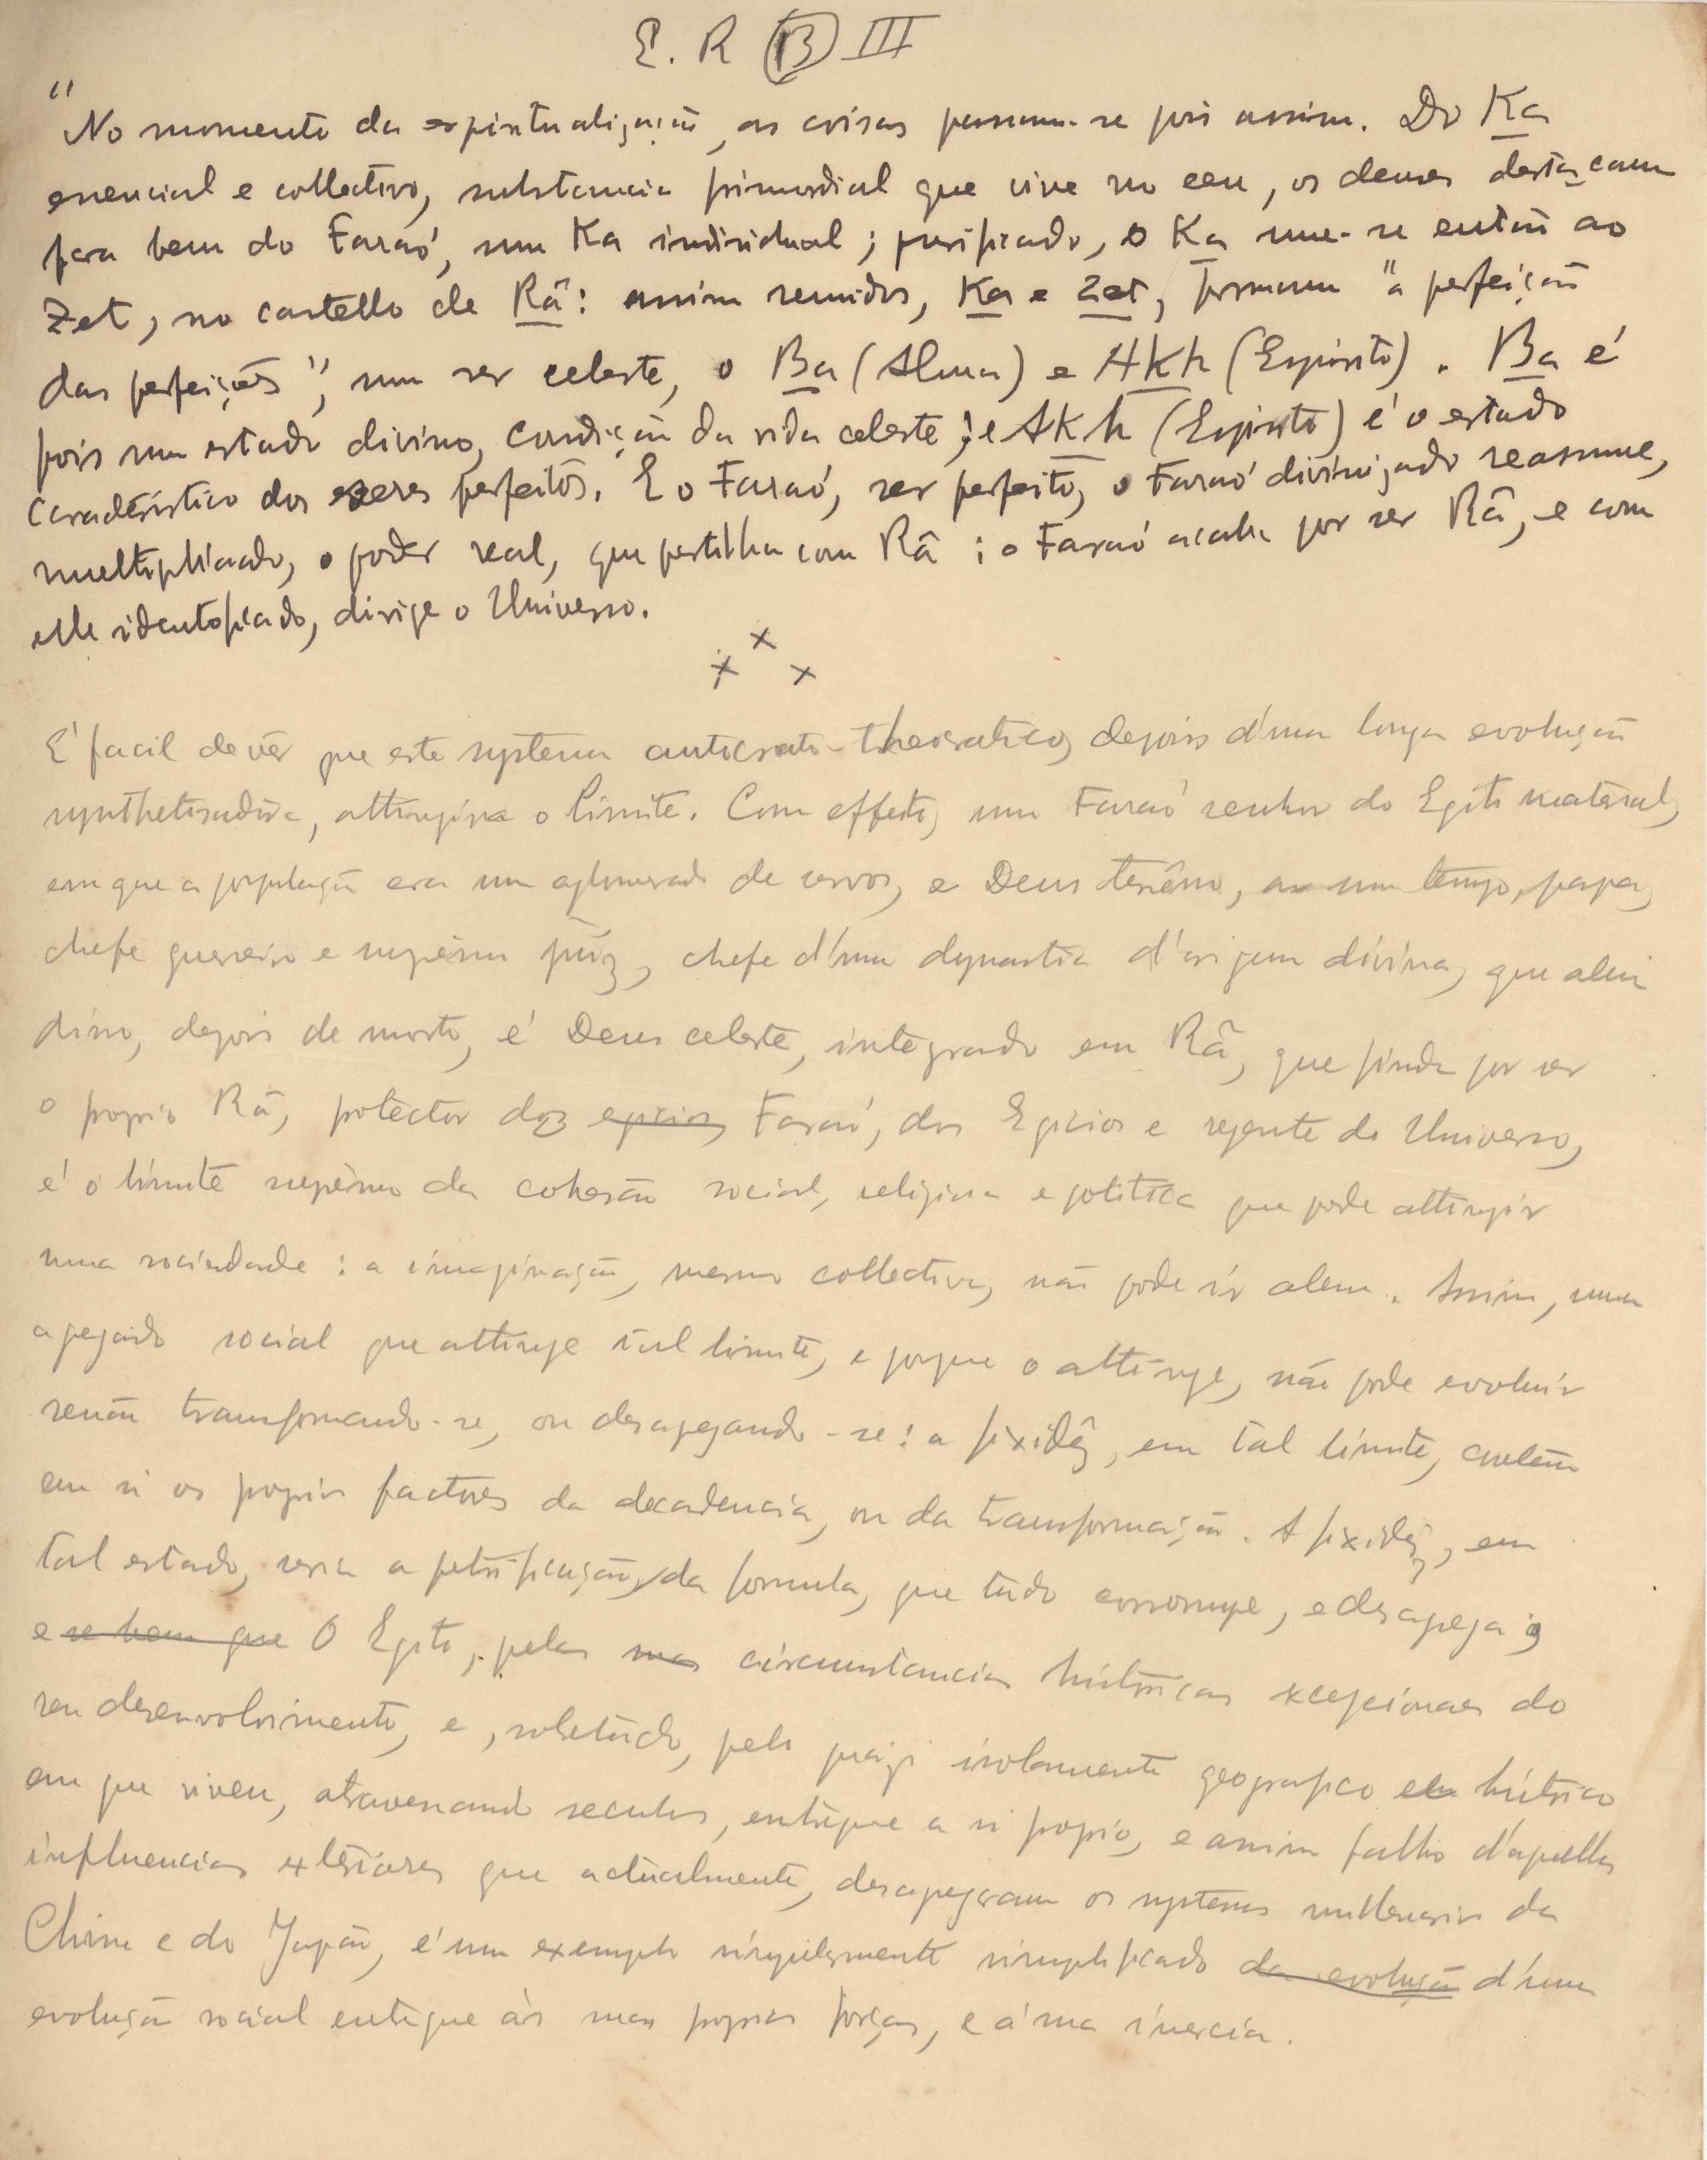 E. R (13) III
"No momento da espiritualização, as coisas passam-se pois assim. Do Ka
essencial e collectivo, substancia primordial que vive no ceu, os deuses destacam
para bem do Faraó, um Ka individual; purificado, o Ka une-se então ao
Zet, no castello de Râ: assim reunidos, Ka e Zet, formam "a perfeição
das perfeições", um ser celeste, o Ba (Alma) e Akh (Espirito). Ba é
pois um estado divino, condição da vida celeste; e Akh (Espirito) é o estado
caracteristico dos seres perfeitos. E o Faraó, ser perfeito, o Faraó divinizado reassume,
multiplicado, o poder real, que partilha com Râ: o Faraó acaba por ser Râ, e com
elle identificado, dirige o Universo.
x x x
E' facil de vêr que este systema autocrato-theocratico, depois d'uma longa evolução
synthetisadora, attingira o limite. Com effeito, um Faraó senhor do Egito material,
em que a população era um aglomerado de servos, e Deus terrêno, a um tempo, papa,
chefe guerreiro e supremo juiz, chefe d'uma dynastia d'origem divina, que alem
disso, depois de morto, é Deus celeste, integrado em Râ, que finda por ser
o proprio Râ, protector dos egicios Faraó, dos Egicios e regente do Universo,
é o limite supremo da cohesão social, religiosa e politica que pode attingir
uma sociedade: a imaginação, mesmo collectiva, não pode ir alem. Assim, um
apegado social que attinge tal limite, e porque o attinge, não pode evoluir
senão transformando-se, ou desapegando-se: a fixidês, em tal limite, contem
em si os proprios factores da decadencia, ou da transformação. A fixidês, em
tal estado, seria a petrificação, da formula, que tudo corrompe, e desapega;
e se bem que O Egito, pelas suas circumstancias historicas excepcionaes do
seu desenvolvimento, e, sobretudo, pelo isolamento geografico e historico
em que viveu, atravessando seculos, entregue a si proprio, e assim falho d'aquellas
influencias exteriores que actualmente, desapegaram os systemas millenarios da
China e do Japão, é um exemplo singularmente simplificado da evolução d'uma
evolução social entregue ás suas proprias forças, e á sua inercia.